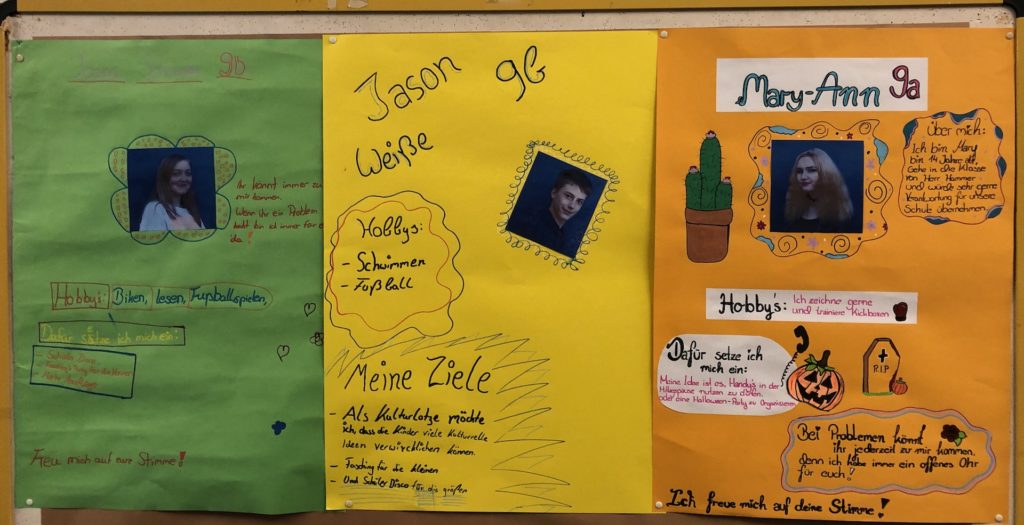 9b
Ihr könnt immer zu
mir kommen.
Wenn ihr ein Problem
habt bin ich immer für e
da!
Hobby's: Biken, lesen, Fußballspielen,
Dafür setze ich mich ein:
- Schüler Disco
- Fasching's Party für die kleinen
Freu mich auf eure Stimme!
Jason 9b
Weiße
Hobbys:
- Schwimmen
- Fußball
Meine Ziele
- Als Kulturlotze möchte
ich, dass die Kinder viele Kulturelle
Ideen verwirklichen können.
- Fasching für die kleinen
- Und Schüler Disco für die größen
Mary-Ann 9a
Über mich:
Ich bin Mary
bin 14 Jahre alt,
Gehe in die Klasse
von Herr Hammer
und würde sehr gerne
Verantwortung für unsere
Schule übernehmen.
Hobby's: Ich zeichne gerne
und trainiere Kickboxen
Dafür setze ich
mich ein:
Meine Idee ist es, Handy's in der
Hofpause nutzen zu dürfen.
oder eine Halloween-Party zu Organisieren
R.I.P
Bei Problemen könnt
ihr jederzeit zu mir kommen,
denn ich habe immer ein offenes Ohr
für euch!
Ich freue mich auf deine Stimme!